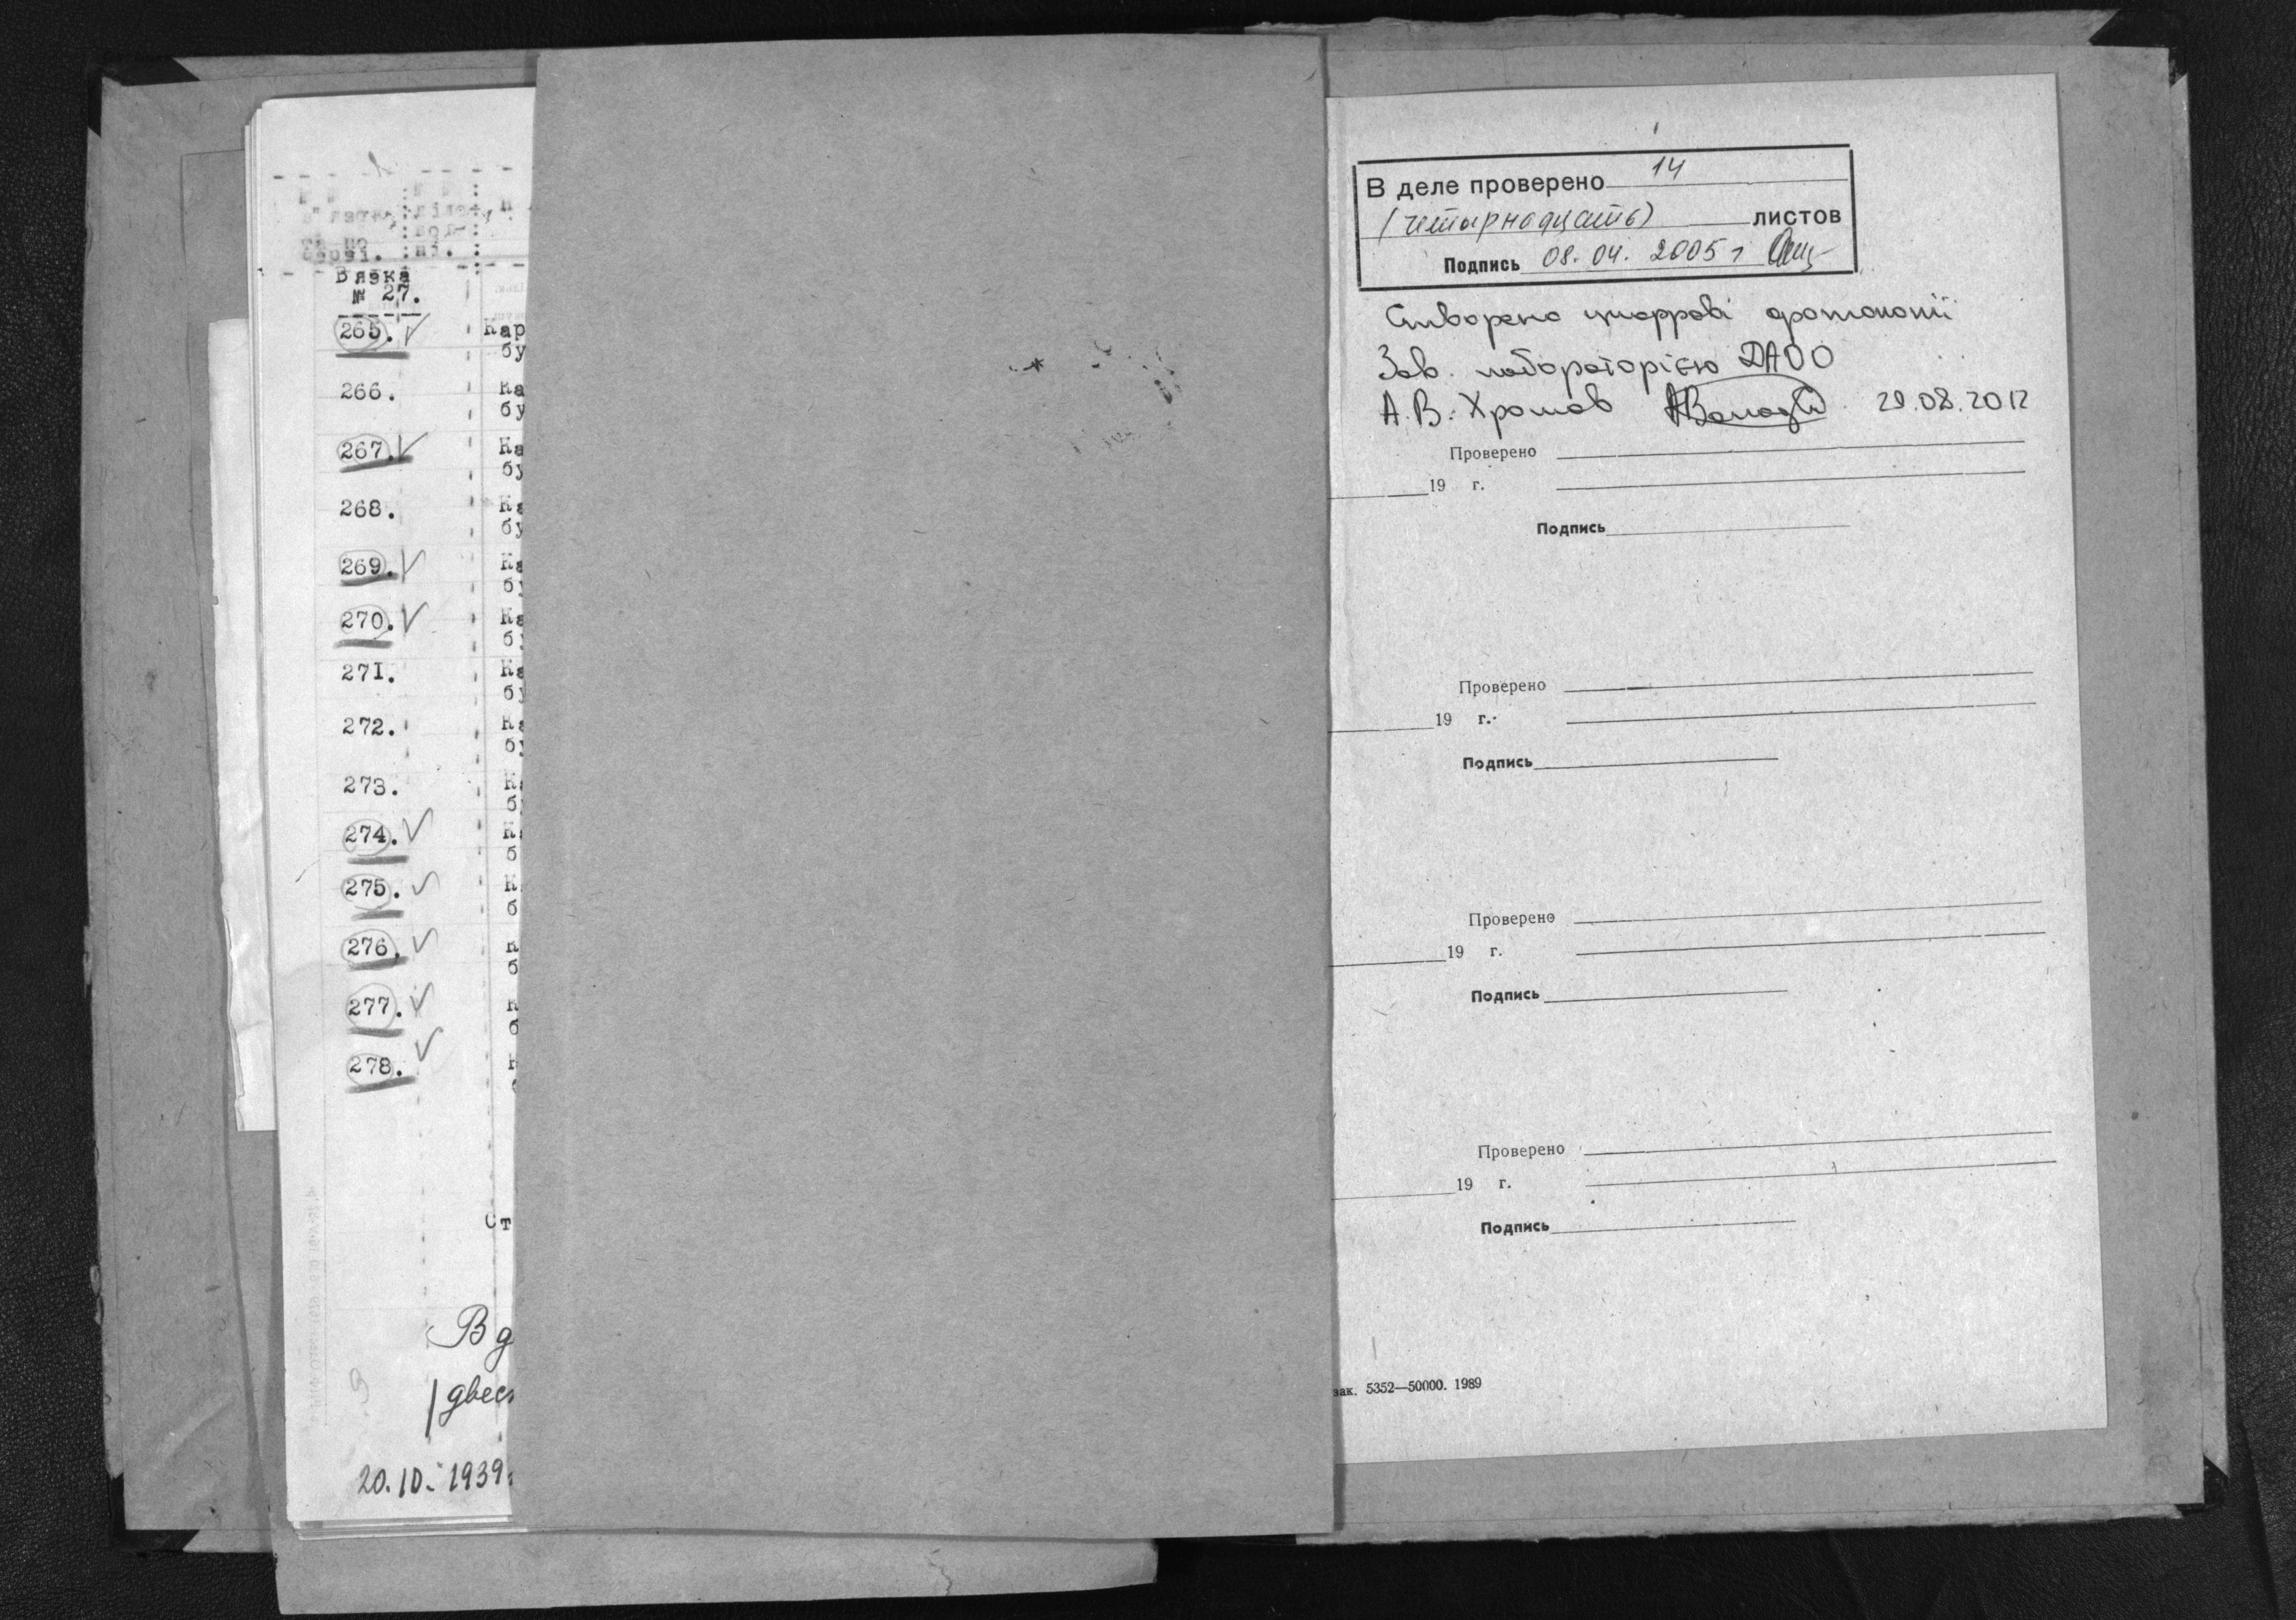 Вяэка
№ 27.
265. Кар
бу
266. Ка
бу
267. Ка
бу
268. Ка
бу
269. Ка
бу
270. Ка
бу
271. Ка
бу
272. Ка
бу
273. К
б
274. К
б
275. К
б
276. К
б
277. К
б
278.
Ст
В д
/двес
20.10. 1939
В деле проверено 14
(четырнадцать) листов
Подпись 08.04.2005 г
Створено цифрові фотокопії
Зав. лабораторією ДАОО
А.В. Хромов 29.08.2012
Проверено
19 г.
Подпись
Проверено
19 г.
Подпись
Проверено
19 г.
Подпись
Проверено
19 г.
Подпись
зак. 5352—50000. 1989